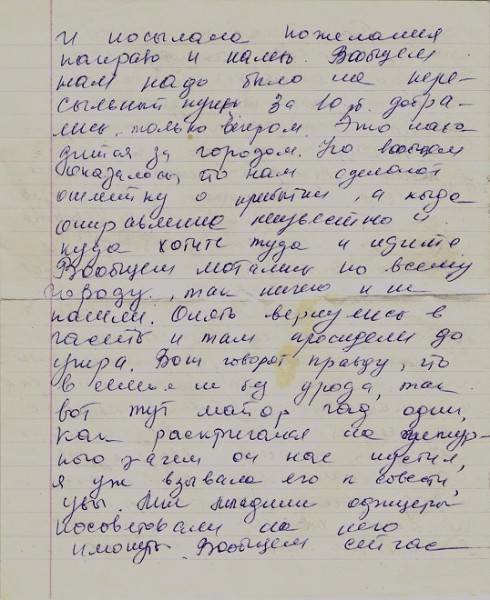 и посылала пожелания
направо и налево. Вообщем
нам надо было на пере-
сыльный пункт за 10 р. добра-
лись, только вечером. Это нахо
дится за городом. Что вообщем
оказалось, что нам сделают
отметку о прибытии, а когда
отправление неизвестно и
куда хотите туда и идите.
Вообщем мотались по всему
городу, так ничего и не
нашли. Опять вернулись в
часть и там просидели до
утра. Вот говорят правду, что
в семье не без урода, так
вот тут майор гад один,
как раскричался на дежур-
ного зачем он нас пустил,
я уж взывала его к совести,
увы. Мне младшие офицеры
посоветовали на него
плюнуть. Вообщем сейчас